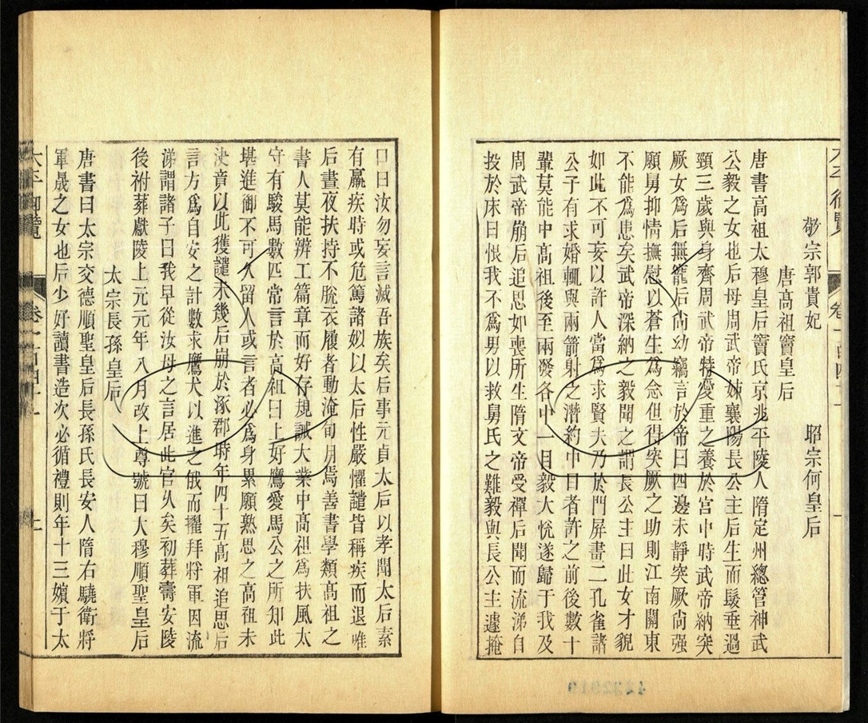 太平御覽 卷一百四十一
宗郭貴妃 昭宗何皇后
唐高祖竇皇后
唐書高祖太穆皇后竇氏京兆平陵人隋定州總管神武
公毅之女也后母周武帝姊襄陽長公主后生而髮垂過
頸三歲與身齊周武帝特愛重之養於宮中時武帝納突
厥女爲后無寵后尚幼竊言於帝曰四邊未靜突厥尚强
願舅抑情撫慰以蒼生爲念但得突厥之助則江南關東
不能爲患矣武帝深納之毅聞之謂長公主曰此女才貌
如此不可妄以許人當爲求賢夫乃於門屏畫二孔雀諸
公子有求婚輒與兩箭射之潛約中目者許之前後數十
輩莫能中高祖後至兩發各中一目毅大悅遂歸于我及
周武帝崩后追思如喪所生隋文帝受禪后聞而流涕自
投於床曰恨我不爲男以救舅氏之難毅與長公主遽掩
口曰汝勿妄言滅吾族矣后事元貞太后以孝聞太后素
有羸疾時或危篤諸姒以太后性嚴懼譴皆稱疾而退唯
后晝夜扶持不脫衣履者動淹旬月焉善書學類高祖之
書人莫能辨工篇章而好存規誡大業中高祖爲扶風太
守有駿馬數匹常言於高祖曰上好鷹愛馬公之所知此
堪進御不可久留人或言者必爲身累願熟思之高祖未
決竟以此獲譴未幾后崩於涿郡時年四十五高祖追思后
言方爲自安之計數求鷹犬以進之俄而擢拜將軍因流
涕謂諸子曰我早從汝母之言居此官久矣初葬壽安陵
後祔葬獻陵上元元年八月改上尊號曰大穆順聖皇后
太宗長孫皇后
唐書曰太宗文德順聖皇后長孫氏長安人隋右驍衛將
軍晟之女也后少好讀書造次必循禮則年十三嬪于太
太平御覽 卷一百四十一